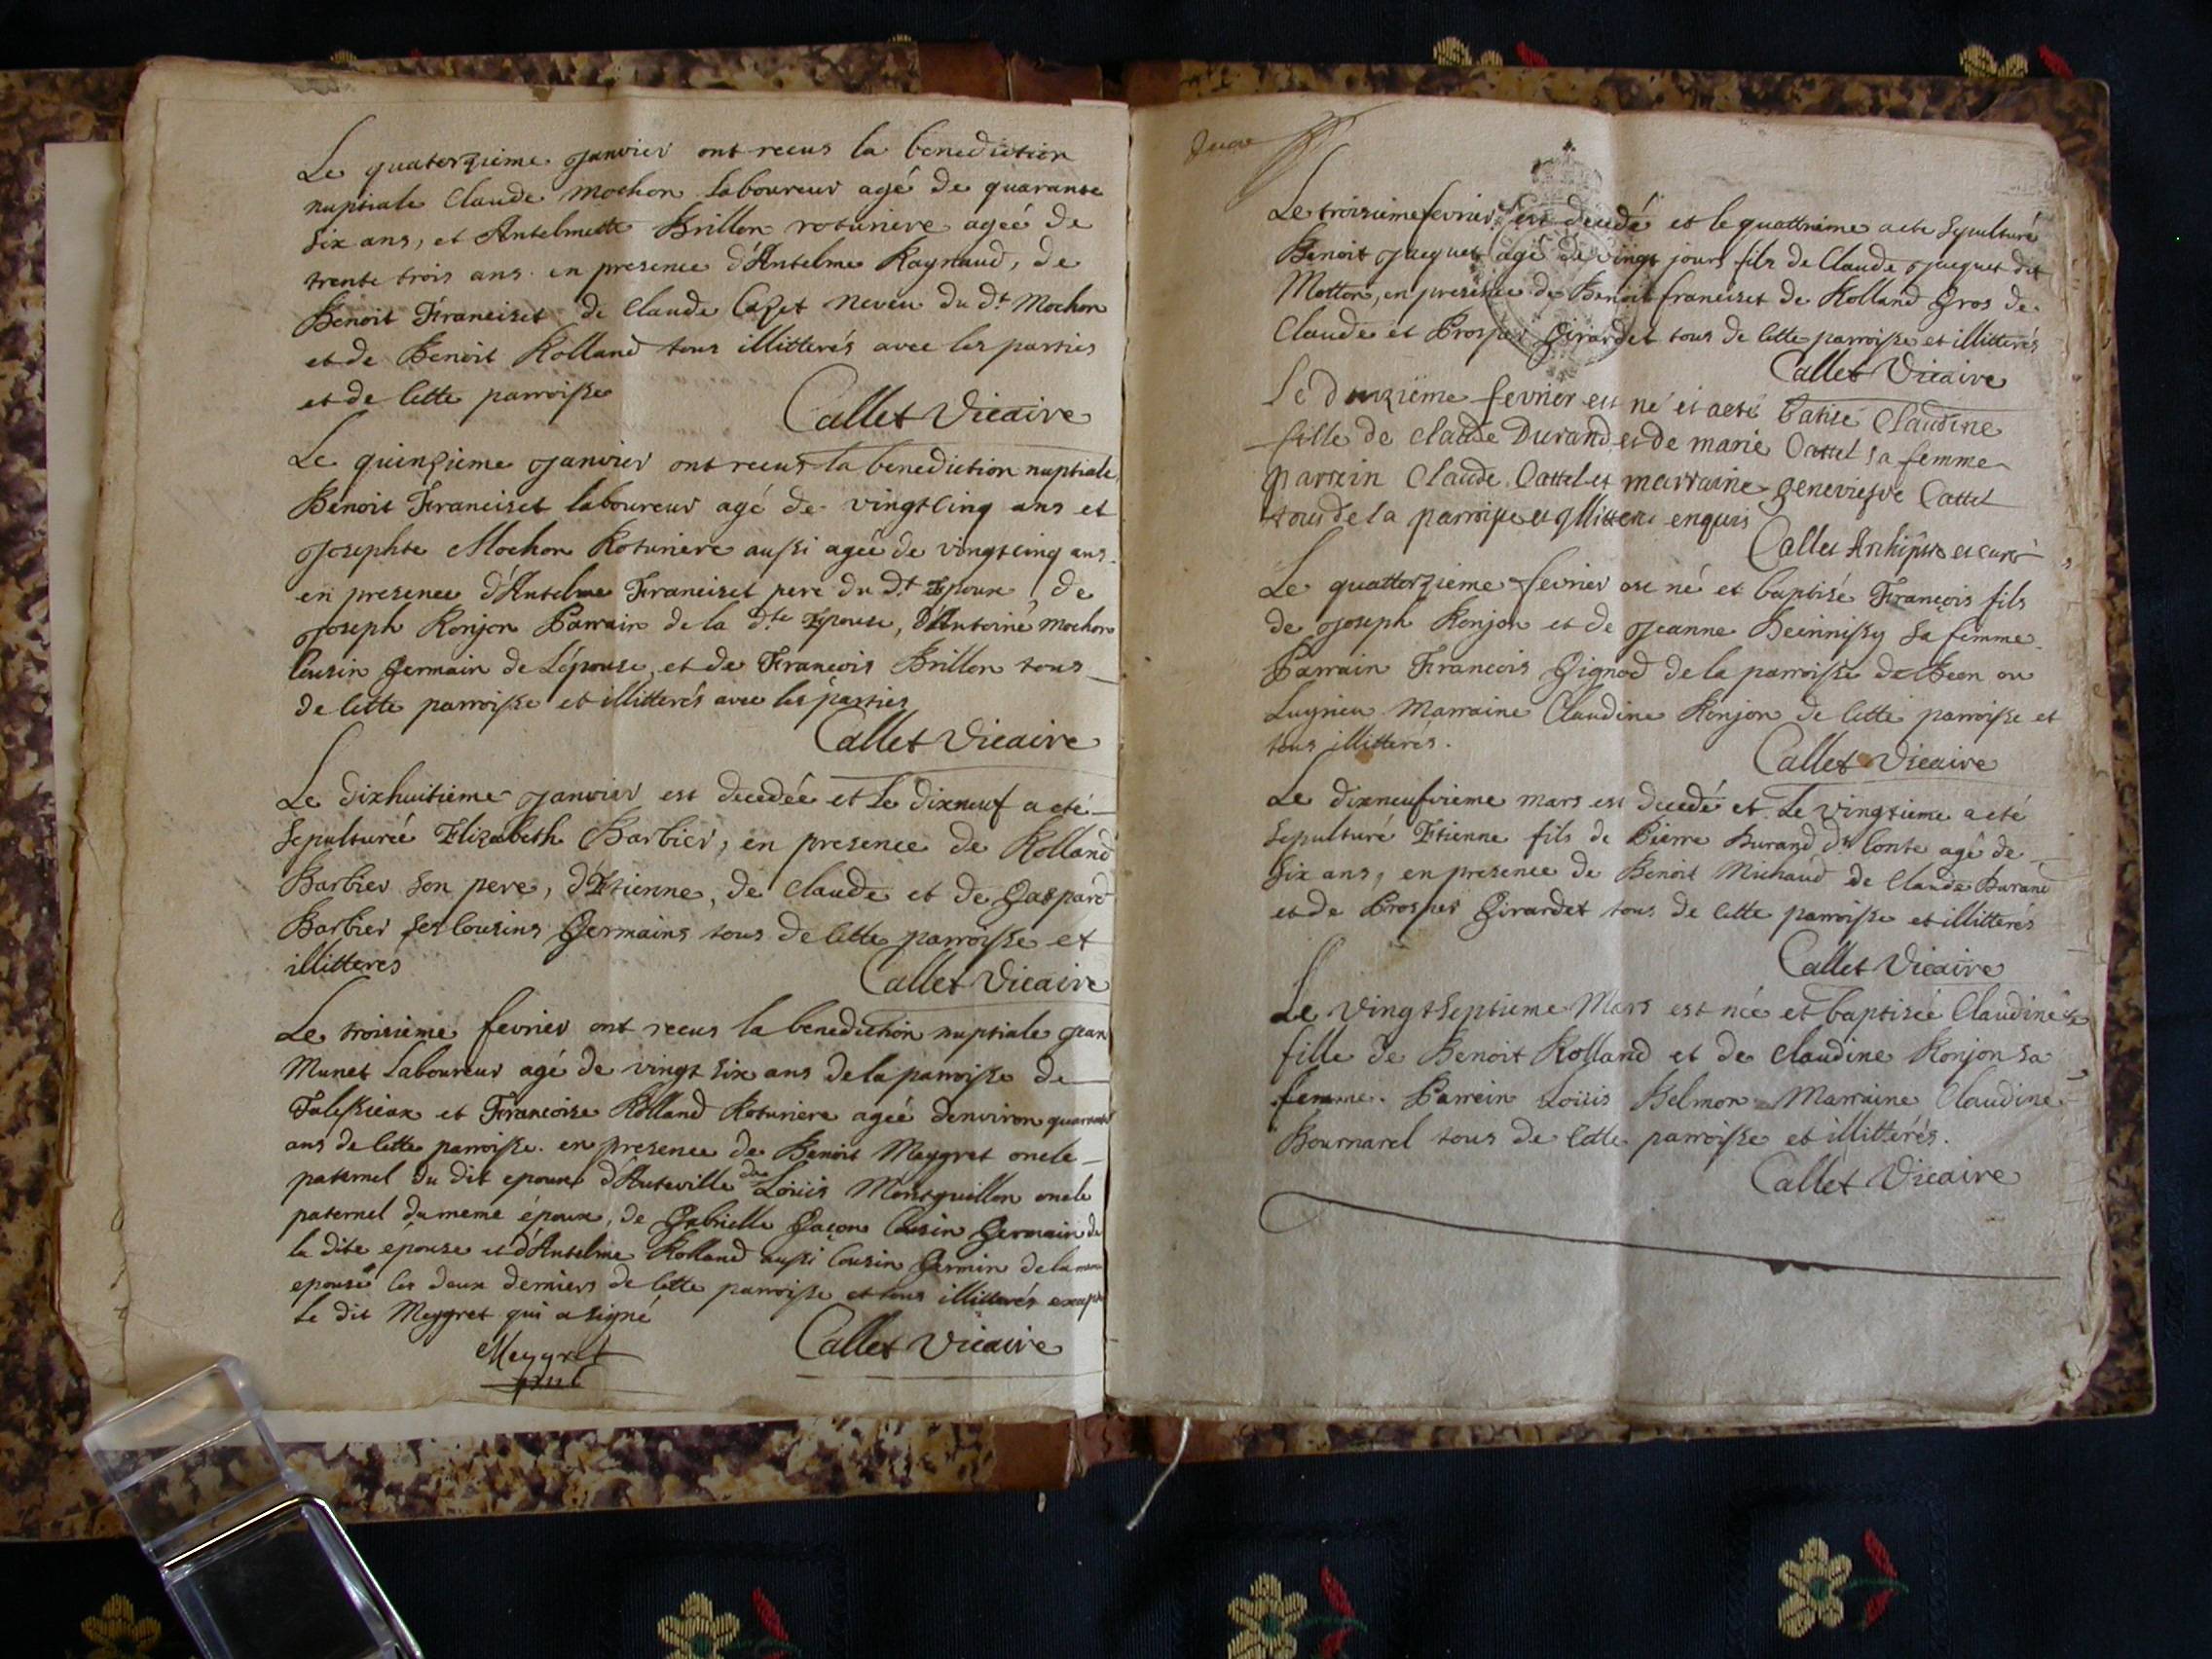 Le quatorzieme janvier ont recus la benediction
nuptiale Claude Mochon laboureur agé de quarante
six ans, et Antelmette Brillon roturiere agée de
trente trois ans en presence d'Antelme Raynaud, de
Benoit Franciset de Claude Cazet neveu du dt Mochon
et de Benoit Rolland tous illitterés avec les parties
et de cette parroisse
Callet Vicaire
Le quinzieme janvier ont recus la benediction nuptiale
Benoit Franciset laboureur agé de vingt cinq ans et
Josephte Mochon Roturiere aussi agée de vingt cinq ans
en presence d'Antelme Franciset pere du dt Epoux, de
Joseph Ronjon Parrain de la dte Epouse, d'Antoine Mochon
Cousin Germain de L'épouse, et de Francois Brillon tous
de cette parroisse et illitterés avec les parties
Callet Vicaire
Le dixhuitieme janvier est decedée et le dixneuf a eté
sepulturée Elizabeth Barbier, en presence de Rolland
Barbier son pere, d'Etienne, de Claude et de Gaspard
Barbier ses Cousins Germains tous de cette parroisse et
illitteres
Callet Vicaire
Le troisieme fevrier ont recus la benediction nuptiale Jean
Munet Laboureur agé de vingt six ans de la parroisse de
Talissieux et Francoise Rolland Roturiere agée denviron quarante
ans de cette parroisse. en presence de Benoit Meygret oncle
paternel du dit epoux d'Auteville de Loüis Montguillon oncle
paternel du meme époux, de Gabrielle Gaçon Cousin Germain de
la dite epouse et d'Antelme Rolland aussi Cousin Germin de la meme
epouse les deux derniers de cette parroisse et tous illitterés excepté
le dit Meygret qui a signé
Meygret
Callet Vicaire
Le troisieme fevrier est decedé et le quattrieme a ete sepulturé
Benoit Jacquet agé de vingt jours fils de Claude Jacquet dit
Motton, en presence de Benoit franciset de Rolland Gros de
Claude et Prosper Girardet tous de cette parroisse et illitterés
Callet Vicaire
Le douzieme fevrier est né et a eté batisé Claudine
fille de claude Durand et de marie Cattel sa femme
parrein Claude Cattel et marraine genevieve Cattel
tous de la parroisse et illitteré enquis
Callet Archiptre et curé
Le quattorzieme fevrier est né et baptisé François fils
de Joseph Ronjon et de Jeanne Beinnissy sa femme
Parrain Francois Gignod de la parroisse de Beon ou
Luyrieu Marraine Claudine Ronjon de cette parroisse et
tous illitterés.
Callet Vicaire
Le dixneufvieme mars est decedé et le vingtieme a eté
sepulturé Etienne fils de Pierre Durand dt Conte agé de
six ans, en presence de Benoit Michaud de Claude Durand
et de Prosper Girardet tous de cette parroisse et illitterés
Callet Vicaire
Le vingt septieme Mars est née et baptisée Claudine
fille de Benoit Rolland et de Claudine Ronjon sa
femme. Parrein Loüis Belmon Marraine Claudine
Bournarel tous de cette parroisse et illitterés.
Callet Vicaire